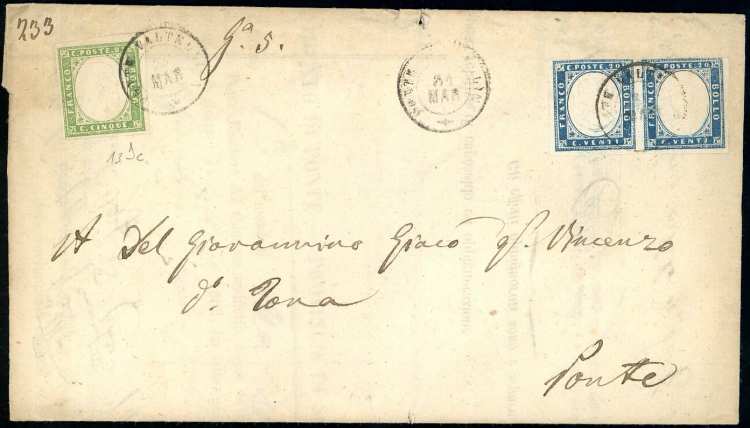 233
Ga 5.
C. POSTE. 5
FRANCO
BOLLO
C. CINQUE
VALTEL
MAR
24
MAR
C. POSTE. 20
FRANCO
BOLLO
C. VENTI
C. POSTE. 20
FRANCO
BOLLO
C. VENTI
A Del Giovannino Giacò qm Vincenzo
di
Ponte